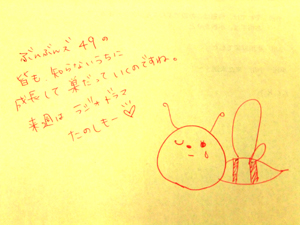 ぶんぶんズ49の
皆も知らないうちに
成長して巣だっていくのですね。
来週はラジオドラマ
たのしもー♡